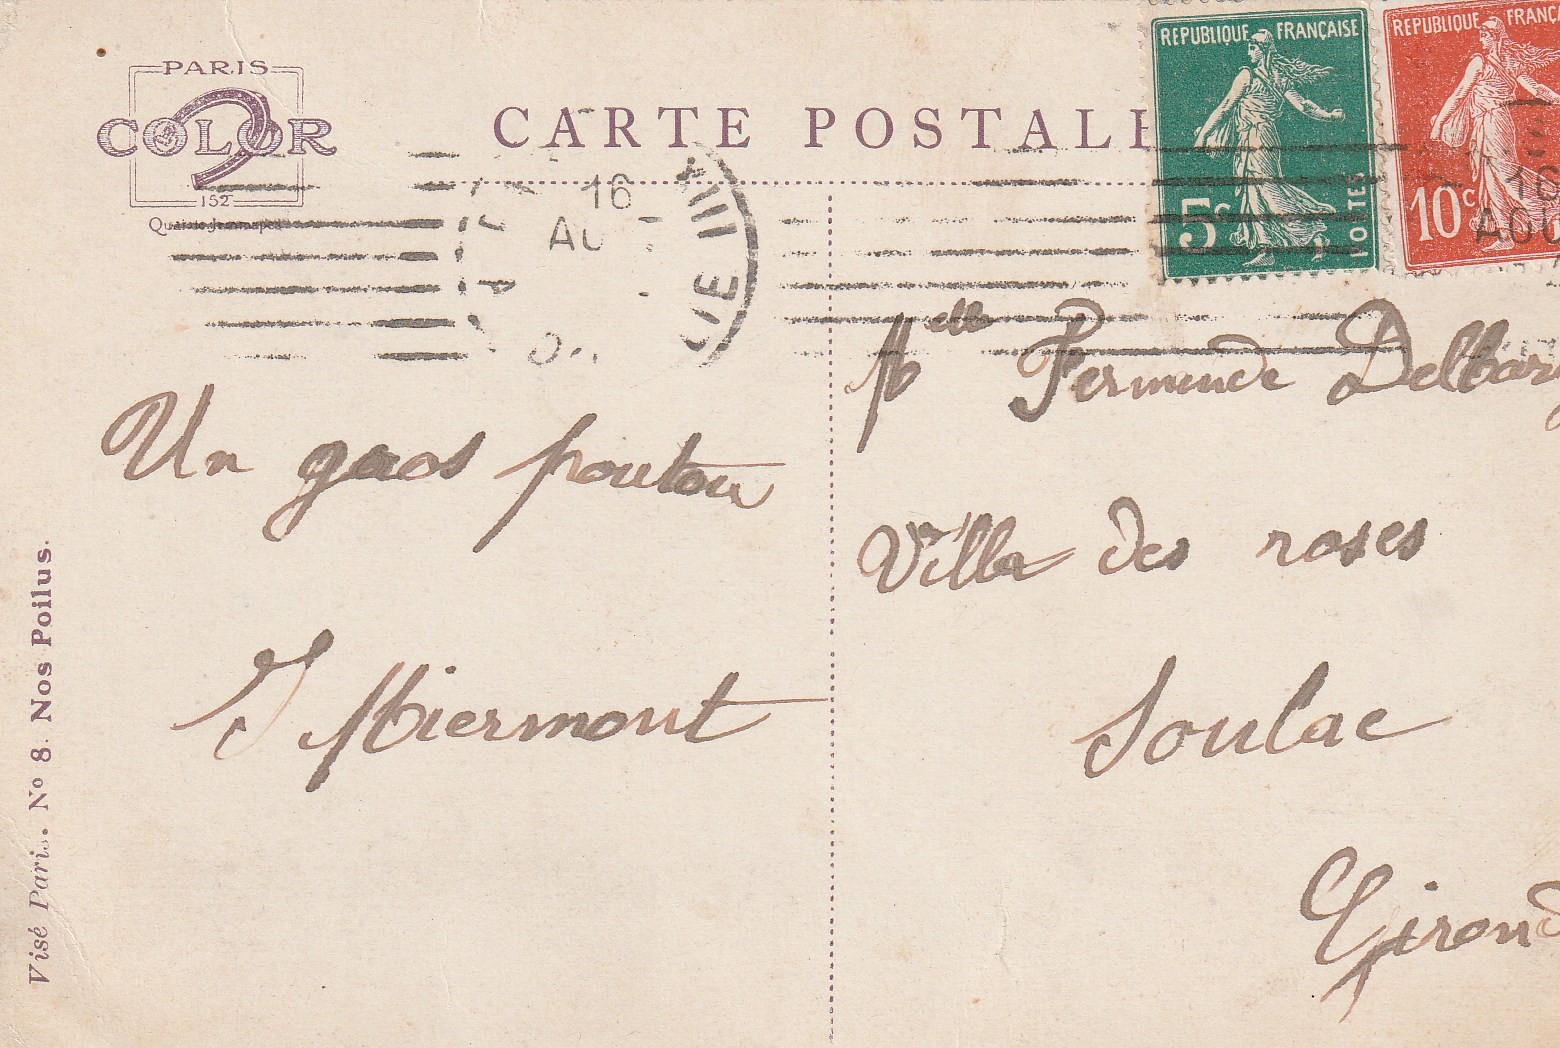 PARIS
COLOR
152
Quai de Jemmapes
CARTE POSTALE
REPUBLIQUE FRANÇAISE
5c
POSTES
REPUBLIQUE FRANÇA
10c
16
AOU
16
AOU
Melle Fernande Delbarg
Un gros poutou
Villa des roses
J Miermont
Soulac
Girond
Visé Paris. No 8. Nos Poilus.